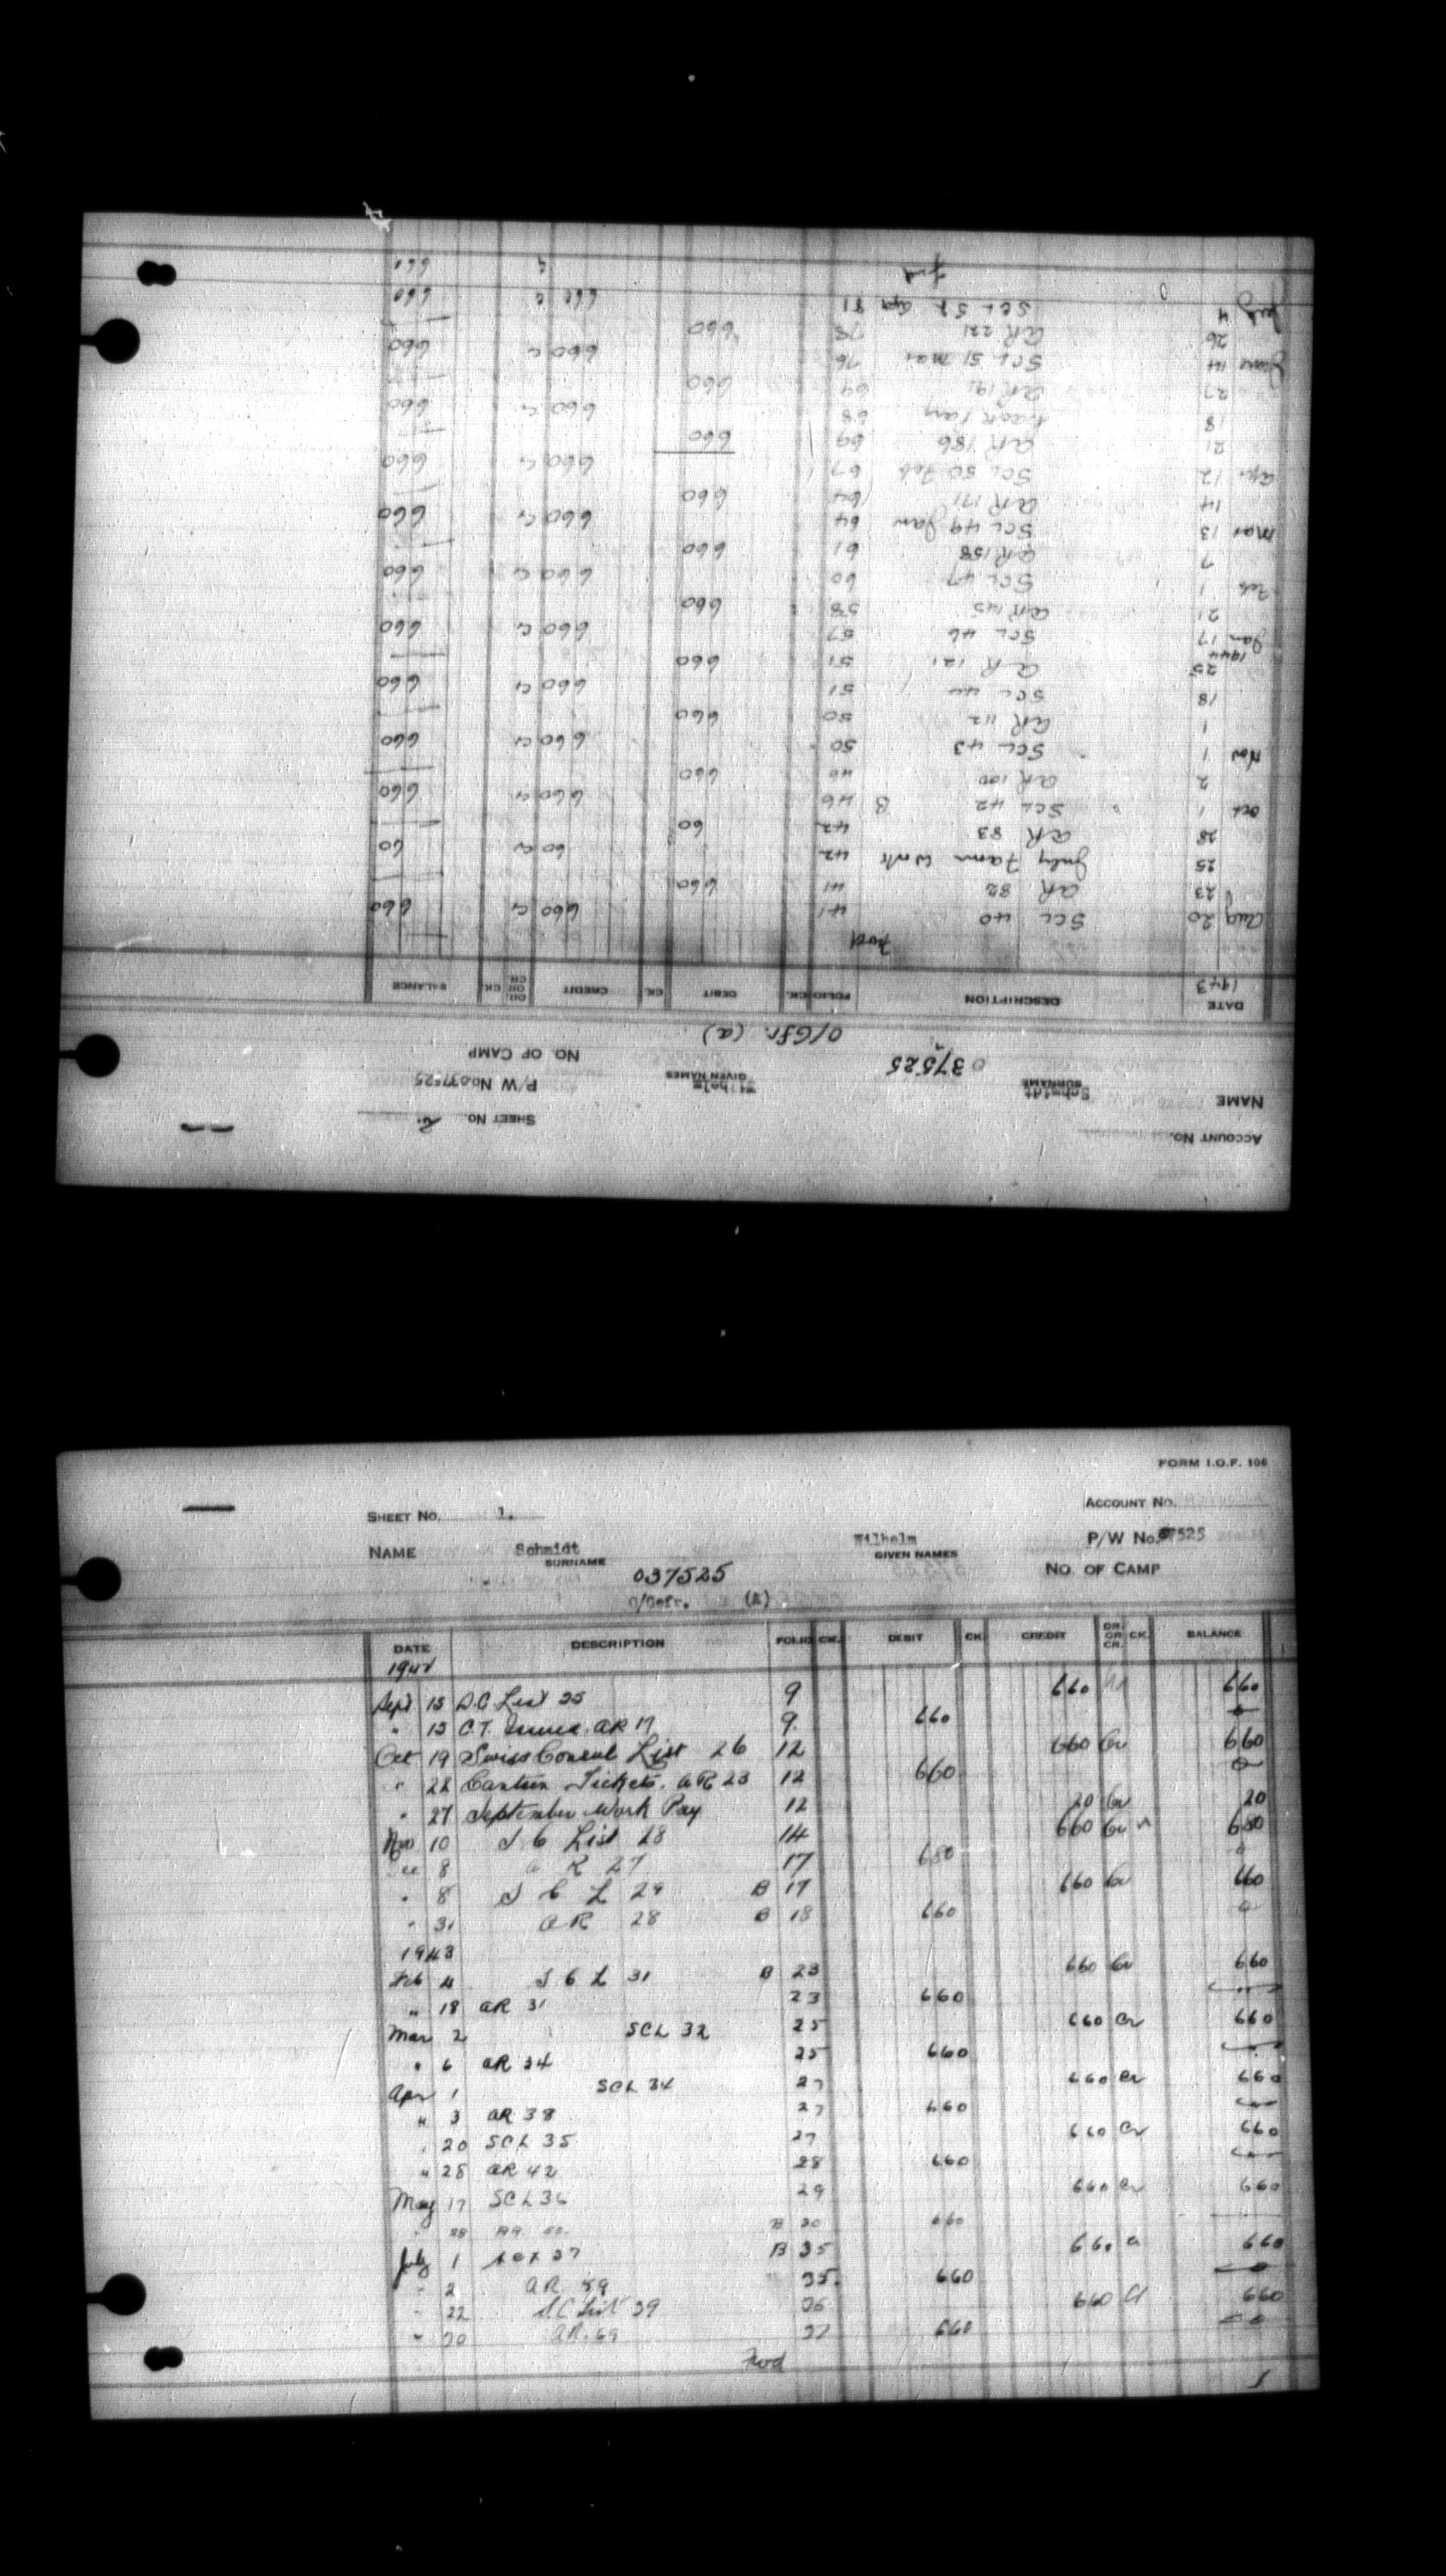 ACCOUNT NO.
SHEET NO. 2.
NAME Schmidt Wilhelm P/W No. 037525
SURNAME GIVEN NAMES
037525 NO. OF CAMP
O/Gfr. (a)
DATE DESCRIPTION FOLIO CK. DEBIT CK. CREDIT DR. OR CR. CK. BALANCE
1943
Fwd
Aug 20 SCL 40 41 660 Cr 660
23 AR 82 41 660
25 July Farm Work 42 60 Cr 60
28 AR 83 42 60
Oct 1 SCL 42 B 46 660 Cr 660
2 AR 100 46 660
Nov 1 SCL 43 50 660 Cr 660
1 AR 112 50 660
18 SCL 44 51 660 Cr 660
25 AR 121 51 660
1944
Jan 17 SCL 46 57 660 Cr 660
21 AR 145 58 660
Feb 1 SCL 47 60 660 Cr 660
7 AR 158 61 660
Mar 13 SCL 49 Jan 64 660 Cr 660
14 AR 171 64 660
Apr 12 SCL 50 Feb 67 660 Cr 660
21 AR 186 69 660
18 Pay 68 660 Cr 660
27 AR 191 69 660
June 14 SCL 51 Mar 76 660 Cr 660
26 AR 221 78 660
July 4 SCL 52 Apr 81 660 Cr 660
Fwd 660
FORM I.O.F. 106
SHEET NO. 1. ACCOUNT NO.
NAME Schmidt Wilhelm P/W No. 37525
SURNAME GIVEN NAMES
037525 NO. OF CAMP
O/Gefr. (A)
DATE DESCRIPTION FOLIO CK. DEBIT CK. CREDIT DR. OR CR. CK. BALANCE
1942
Sept 15 S.C List 25 9 660 660
" 15 C.T. Issued AR 17 9 660 0
Oct 19 Swiss Consul List 26 12 660 Cr 660
" 22 Canteen Tickets. AR 23 12 660 0
" 27 September Work Pay 12 20 Cr 20
Nov 10 S C List 28 14 660 Cr 680
Dec 8 A R 27 17 680 0
" 8 S C L 29 B 17 660 Cr 660
" 31 AR 28 B 18 660 0
1943
Feb 4 S C L 31 B 23 660 Cr 660
" 18 AR 31 23 660
Mar 2 SCL 32 25 660 Cr 660
" 6 AR 34 25 660
Apr 1 SCL 34 27 660 Cr 660
" 3 AR 38 27 660
" 20 SCL 35 27 660 Cr 660
" 28 AR 42 28 660
May 17 SCL 36 29 660 Cr 660
28 B 30 660
July 1 SCL 37 B 35 660 Cr 660
" 2 AR 59 35 660 0
" 22 S.C List 39 36 660 Cr 660
" 30 AR 69 37 660 0
Fwd